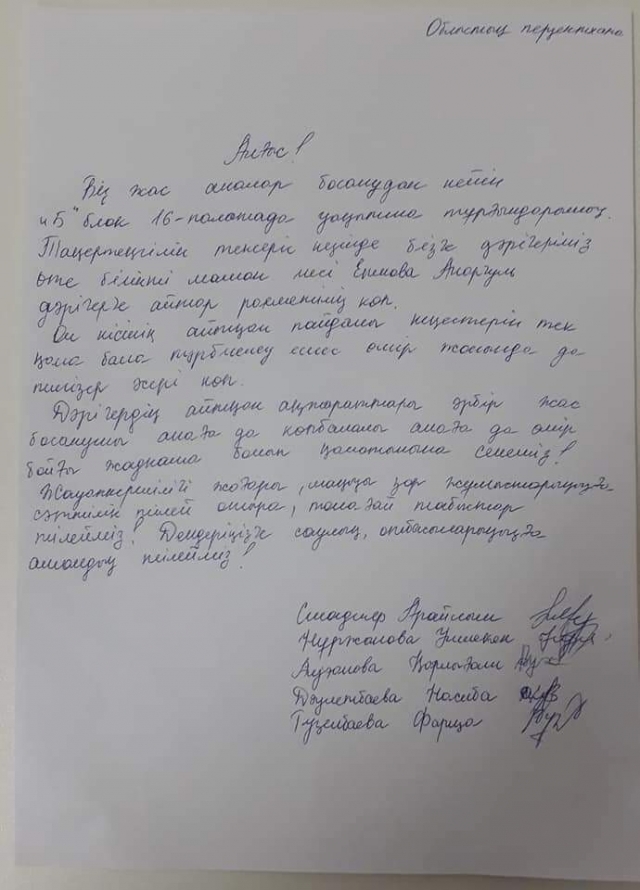 Облыстық перзентхана
Алғыс!
Біз жас аналар босанудан кейін
"Б" блок 16-палатада уақытша тұрғындармыз.
Таңертеңгілік тексеріс кезінде бізге дәрігеріміз
өте білікті маман иесі Анаргүл
дәрігерге айтар рахметіміз көп.
Ол кісінің айтқан пайдалы кеңестерін тек
қана бала тәрбиелеу емес өмір жолында да
тигізер жері көп.
Дәрігердің айтқан ақпараттары әрбір жас
босанушы анаға да көпбалалы анаға да өмір
бойғы жаднама болып қалатынына сенеміз!
Жауапкершілігі жоғары, маңызы зор жұмыстарыңызға
сәттілік тілей отыра, талмай табыстар
тілейміз! Дендеріңізге саулық, отбасыларыңызға
амандық тілейміз!
Арайлым
Нуржанова
Ауханова Қарлығаш
Дәулетбаева Насиба
Тузелбаева Фариза